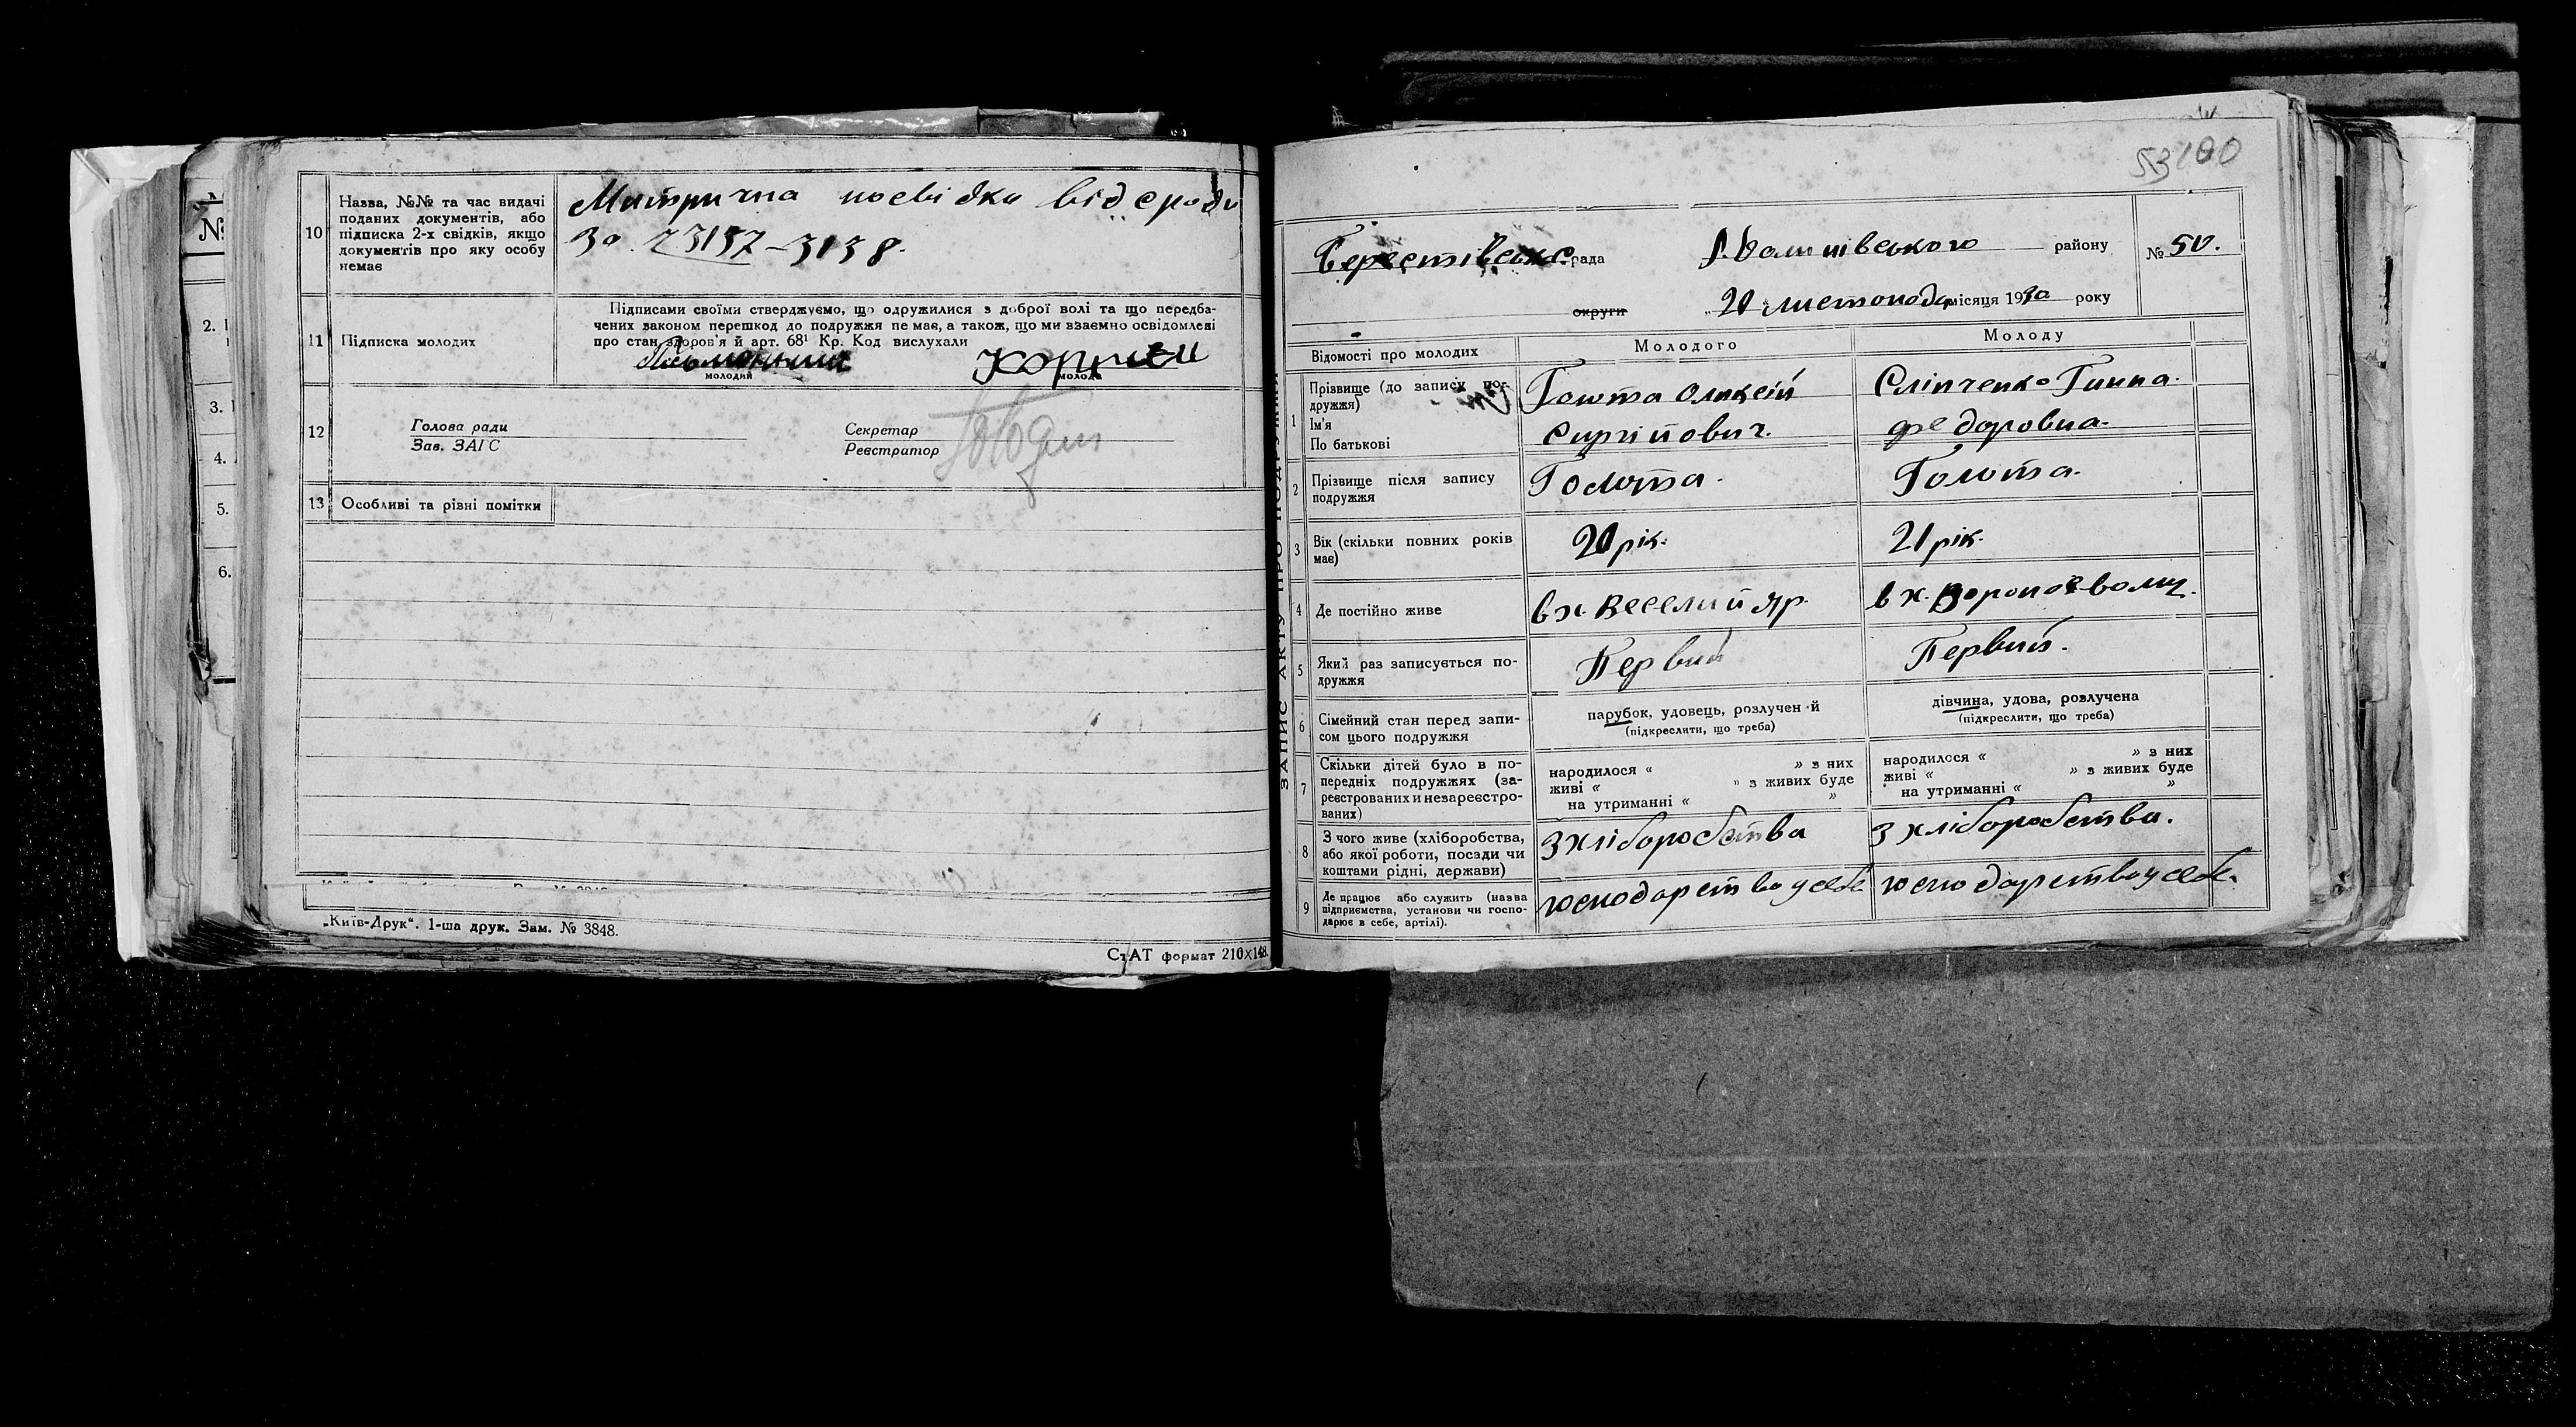 №
2.
3.
4.
5.
6.
10
Назва, №№ та час видачі
поданих документів, або
підписка 2-х свідків, якщо
документів про яку особу
немає
Митрична посвідка від сради
за 3137–3138.
11
Підписка молодих
Підписами своїми стверджуємо, що одружилися з доброї волі та що передба-
чених законом перешкод до подружжя не має, а також, що ми взаємно освідомлені
про стан здоров'я й арт. 68¹ Кр. Код вислухали
молодий
молода
12
Голова ради
Зав. ЗАГС
Секретар
Реєстратор
13
Особливі та різні помітки
„Київ-Друк“. 1-ша друк. Зам. № 3848.
СтАТ формат 210х148.
53 100
ЗАПИС АКТУ ПРО ПОДРУЖЖЯ
Берестівська рада
району
№ 50.
округи
„20 листопада місяця 1930 року
Відомості про молодих
Молодого
Молоду
1
Прізвище (до запису по-
дружжя)
Ім'я
По батькові
Голота Оликсій
Сиргійович.
Сліпченко Ганна.
Федоровна.
2
Прізвище після запису
подружжя
Голота.
Голота.
3
Вік (скільки повних років
має)
20 рік.
21 рік.
4
Де постійно живе
в х. Веселий яр.
в х.
5
Який раз записується по-
дружжя
Первий
Первий.
6
Сімейний стан перед запи-
сом цього подружжя
парубок, удовець, розлучен й
(підкреслити, що треба)
дівчина, удова, розлучена
(підкреслити, що треба)
7
Скільки дітей було в по-
передніх подружжях (за-
реєстрованих и незареєстро-
ваних)
народилося « » з них
живі « » з живих буде
на утриманні « »
народилося « » з них
живі « » з живих буде
на утриманні « »
8
З чого живе (хліборобства,
або якої роботи, посади чи
коштами рідні, держави)
з хліборобства
з хліборобства.
9
Де працює або служить (назва
підприємства, установи чи госпо-
дарює в себе, артілі).
господарство у себе
господарство у себе.